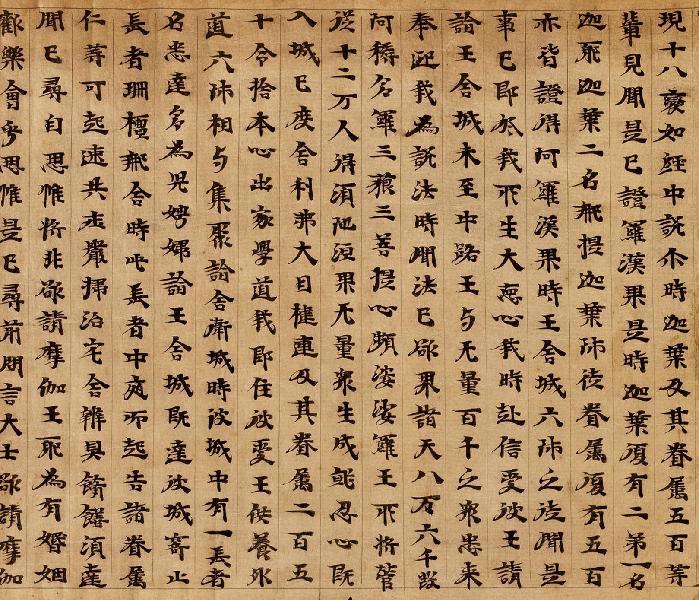 現十八變如經中說尒時迦葉及其眷屬五百等
輩見聞是已證羅漢果是時迦葉復有二弟一名
迦耶迦葉二名那提迦葉師徒眷屬復有五百
亦皆證得阿羅漢果時王舍城六師之徒聞是
事已即於我所生大惡心我時赴信受彼王請
詣王舍城未至中路王与无量百千之眾悉來
奉迎我為說法時聞法已欲界諸天八万六千發
阿耨多羅三藐三菩提心頻婆娑羅王所將營
從十二万人得須陀洹果无量眾生成就忍心既
入城已度舍利弗大目揵連及其眷屬二百五
十令捨本心出家學道我即住彼受王供養外
道六師相与集聚詣舍衛城時彼城中有一長者
名悉達多為兒娉婦詣王舍城既達彼城寄止
長者珊檀那舍時此長者中夜而起告諸眷屬
仁等可起速共庄嚴掃治宅舍辨具餚饍須達
聞已尋自思惟將非欲請摩伽王耶為有婚姻
歡樂會乎思惟是已尋前問言大士欲請摩伽